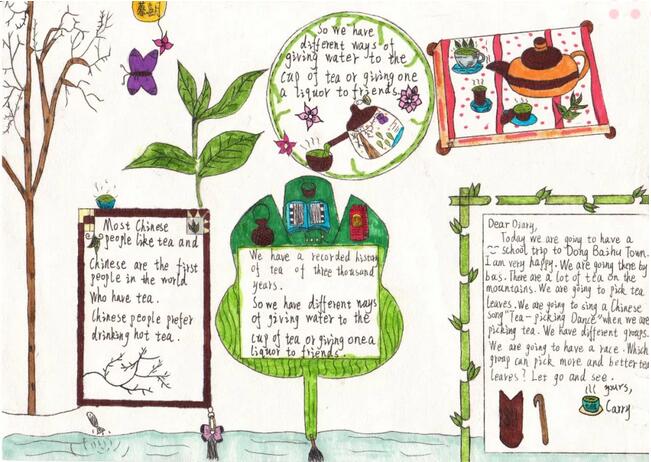 So we have
different ways of
giving water to the
cup of tea or giving one
a liquor to friends.
Most Chinese
people like tea and
Chinese are the first
people in the world
Who have tea.
Chinese people prefer
drinking hot tea.
We have a recorded history
of tea of three thousand
years.
So we have different ways
of giving water to the
cup of tea or giving one a
liquor to friends
Dear Diary,
Today we are going to have a
school trip to Dong Baihu Town.
I am very happy. We are going there by
bus. There are a lot of tea on the
mountains. We are going to pick tea
leaves. We are going to sing a Chinese
song "Tea-picking Dance" when we are
picking tea. We have different groups.
We are going to have a race. Which
group can pick more and better tea
leaves? Let go and see.
yours,
Carry